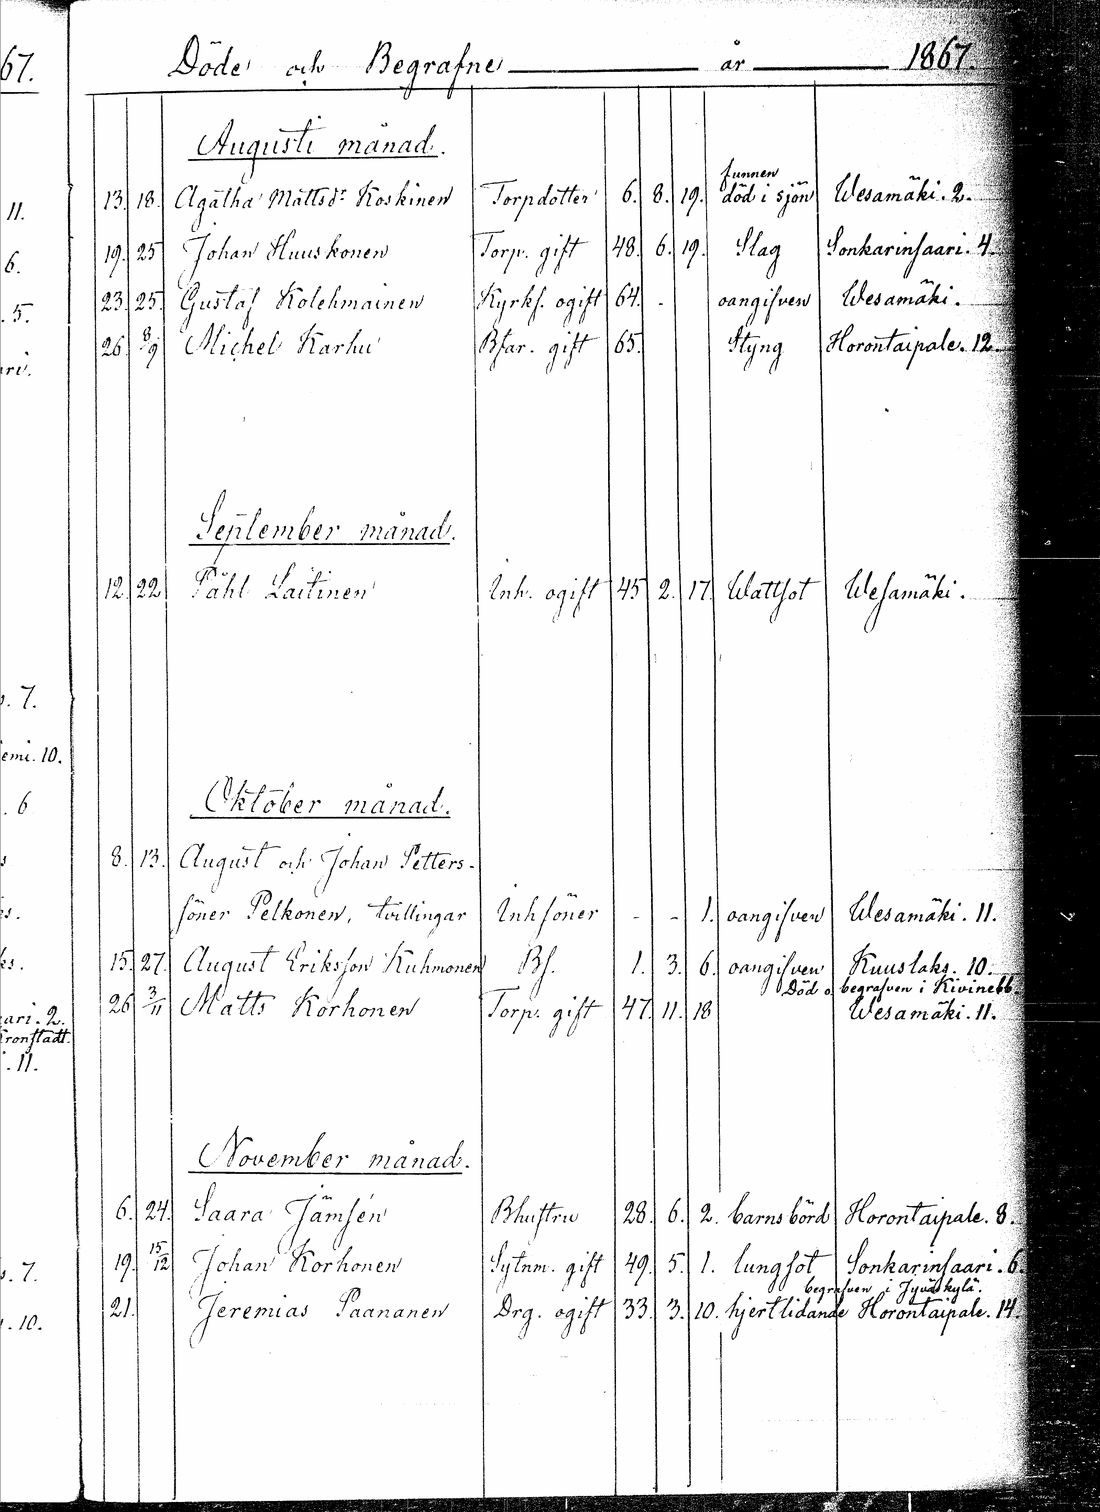 67.
Döde och Begrafne år 1867.
Augusti månad.
funnen
11. 13. 18. Agatha Mattsdr Koskinen Torpdotter 6. 8. 19. död i sjön Wesamäki. 2.
6. 19. 25 Johan Huuskonen Torp. gift 48. 6. 19. Slag Sonkarinsaari. 4.
5. 23. 25. Gustaf Kolehmainen Kyrkf. ogift 64. - oangifven Wesamäki.
ari. 26. 8/9 Michel Karhu Bfar. gift 65. Styng Horontaipale. 12.
September månad.
12. 22 Påhl Laitinen Inh. ogift 45 2. 17. Wattsot Wesamäki.
7.
emi. 10.
Oktober månad.
. 6
8. 13. August och Johan Petters-
söner Pelkonen, tvillingar Inhsöner - - 1. oangifven Wesamäki. 11.
ks. 15. 27. August Eriksson Kuhmonen Bs. 1. 3. 6. oangifven Kuuslaks. 10.
Död o. begrafven i Kivinebb
ari. 2. 26 3/11 Matts Korhonen Torp. gift 47. 11. 18 Wesamäki. 11.
Kronstadt.
. 11.
November månad.
6. 24. Saara Jämsén Bhustru 28. 6. 2. barnsbörd Horontaipale. 8.
7. 19. 15/12 Johan Korhonen Sytnm. gift 49. 5. 1. lungsot Sonkarinsaari. 6.
begrafven i Jyväskylä.
. 10. 21. Jeremias Paananen Drg. ogift 33. 3. 10. hjertlidande Horontaipale. 14.